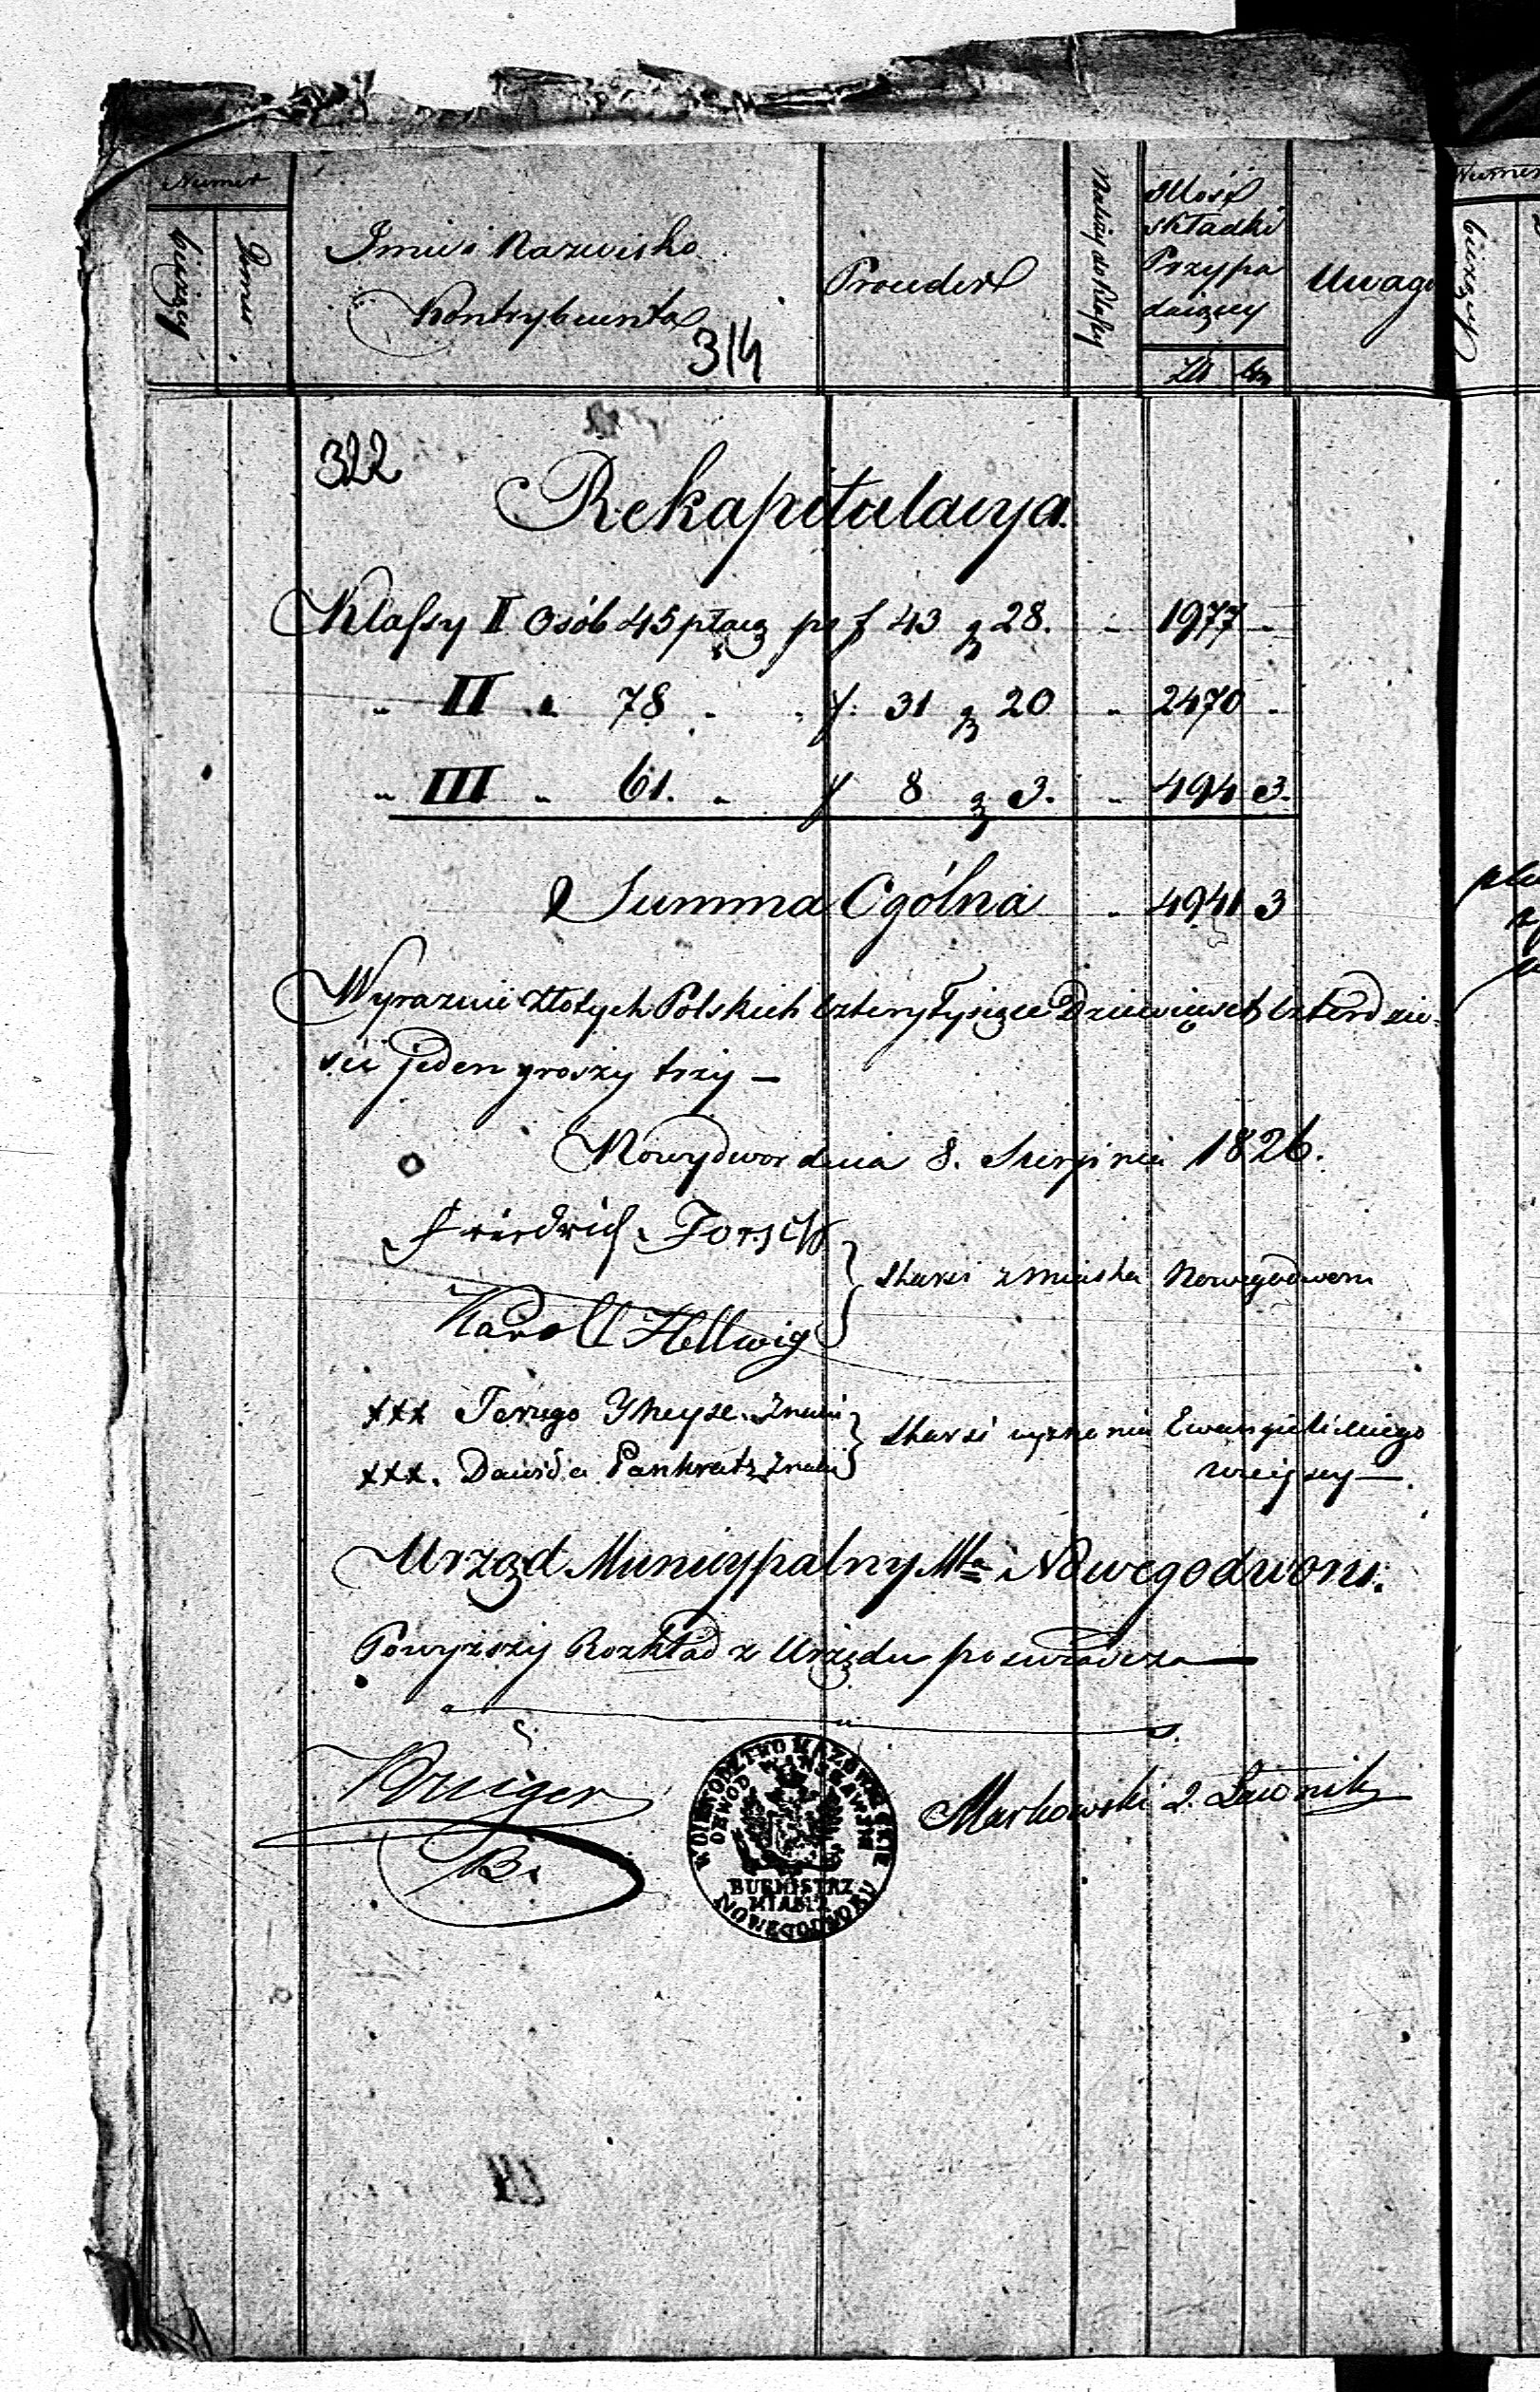 Numer
bieżący
Domu
Imie i Nazwisko
Kontrybuenta
Proceder
Należy do Klassy
Ilość
składki
Przypa
daiącey
Zł
Gr
Uwagi
Numer
bieżący
314
322
Rekapitulacya.
Klassy I Osób 45 płacą po f 43 g 28. " 1977 "
" II " 78 " " f: 31 g 20 " 2470 "
" III " 61. " f 8 g 3. " 494 3.
Summa Ogólna " 4941 3
Wyraznie Złotych Polskich Cztery Tysiące Dziewięset, Czterdzie=
ści jeden groszy trzy —
Nowydwor dnia 8. Sierpnia 1826.
Friedrich
Karoll Hellwig
Starsi z miasta Nowegodworu
xxx Znaki
xxx. Dawida Pankratz Znaki
Starsi wyznania Ewangielickiego
Urząd Municypalny Mta Nowegodworu.
Powyższy Rozkład z Urzędu poswiadcza —
Krüger
B.
WOIEWODZTWO MAZOWIECKIE
OBWOD WARSZAWSKI
BURMISTRZ
MIASTA
NOWEGODWORU
Markowski Ławnik